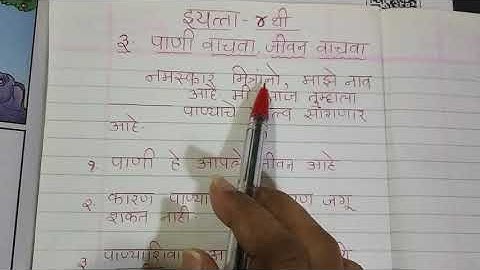 इयत्ता - ४ थी
३. पाणी वाचवा, जीवन वाचवा
नमस्कार मित्रांनो, माझे नाव
आहे मी तुम्हाला
पाण्याचे सांगणार
आहे.
१ पाणी हे आपले जीवन आहे
२ कारण जगू
शकत नाही.
३